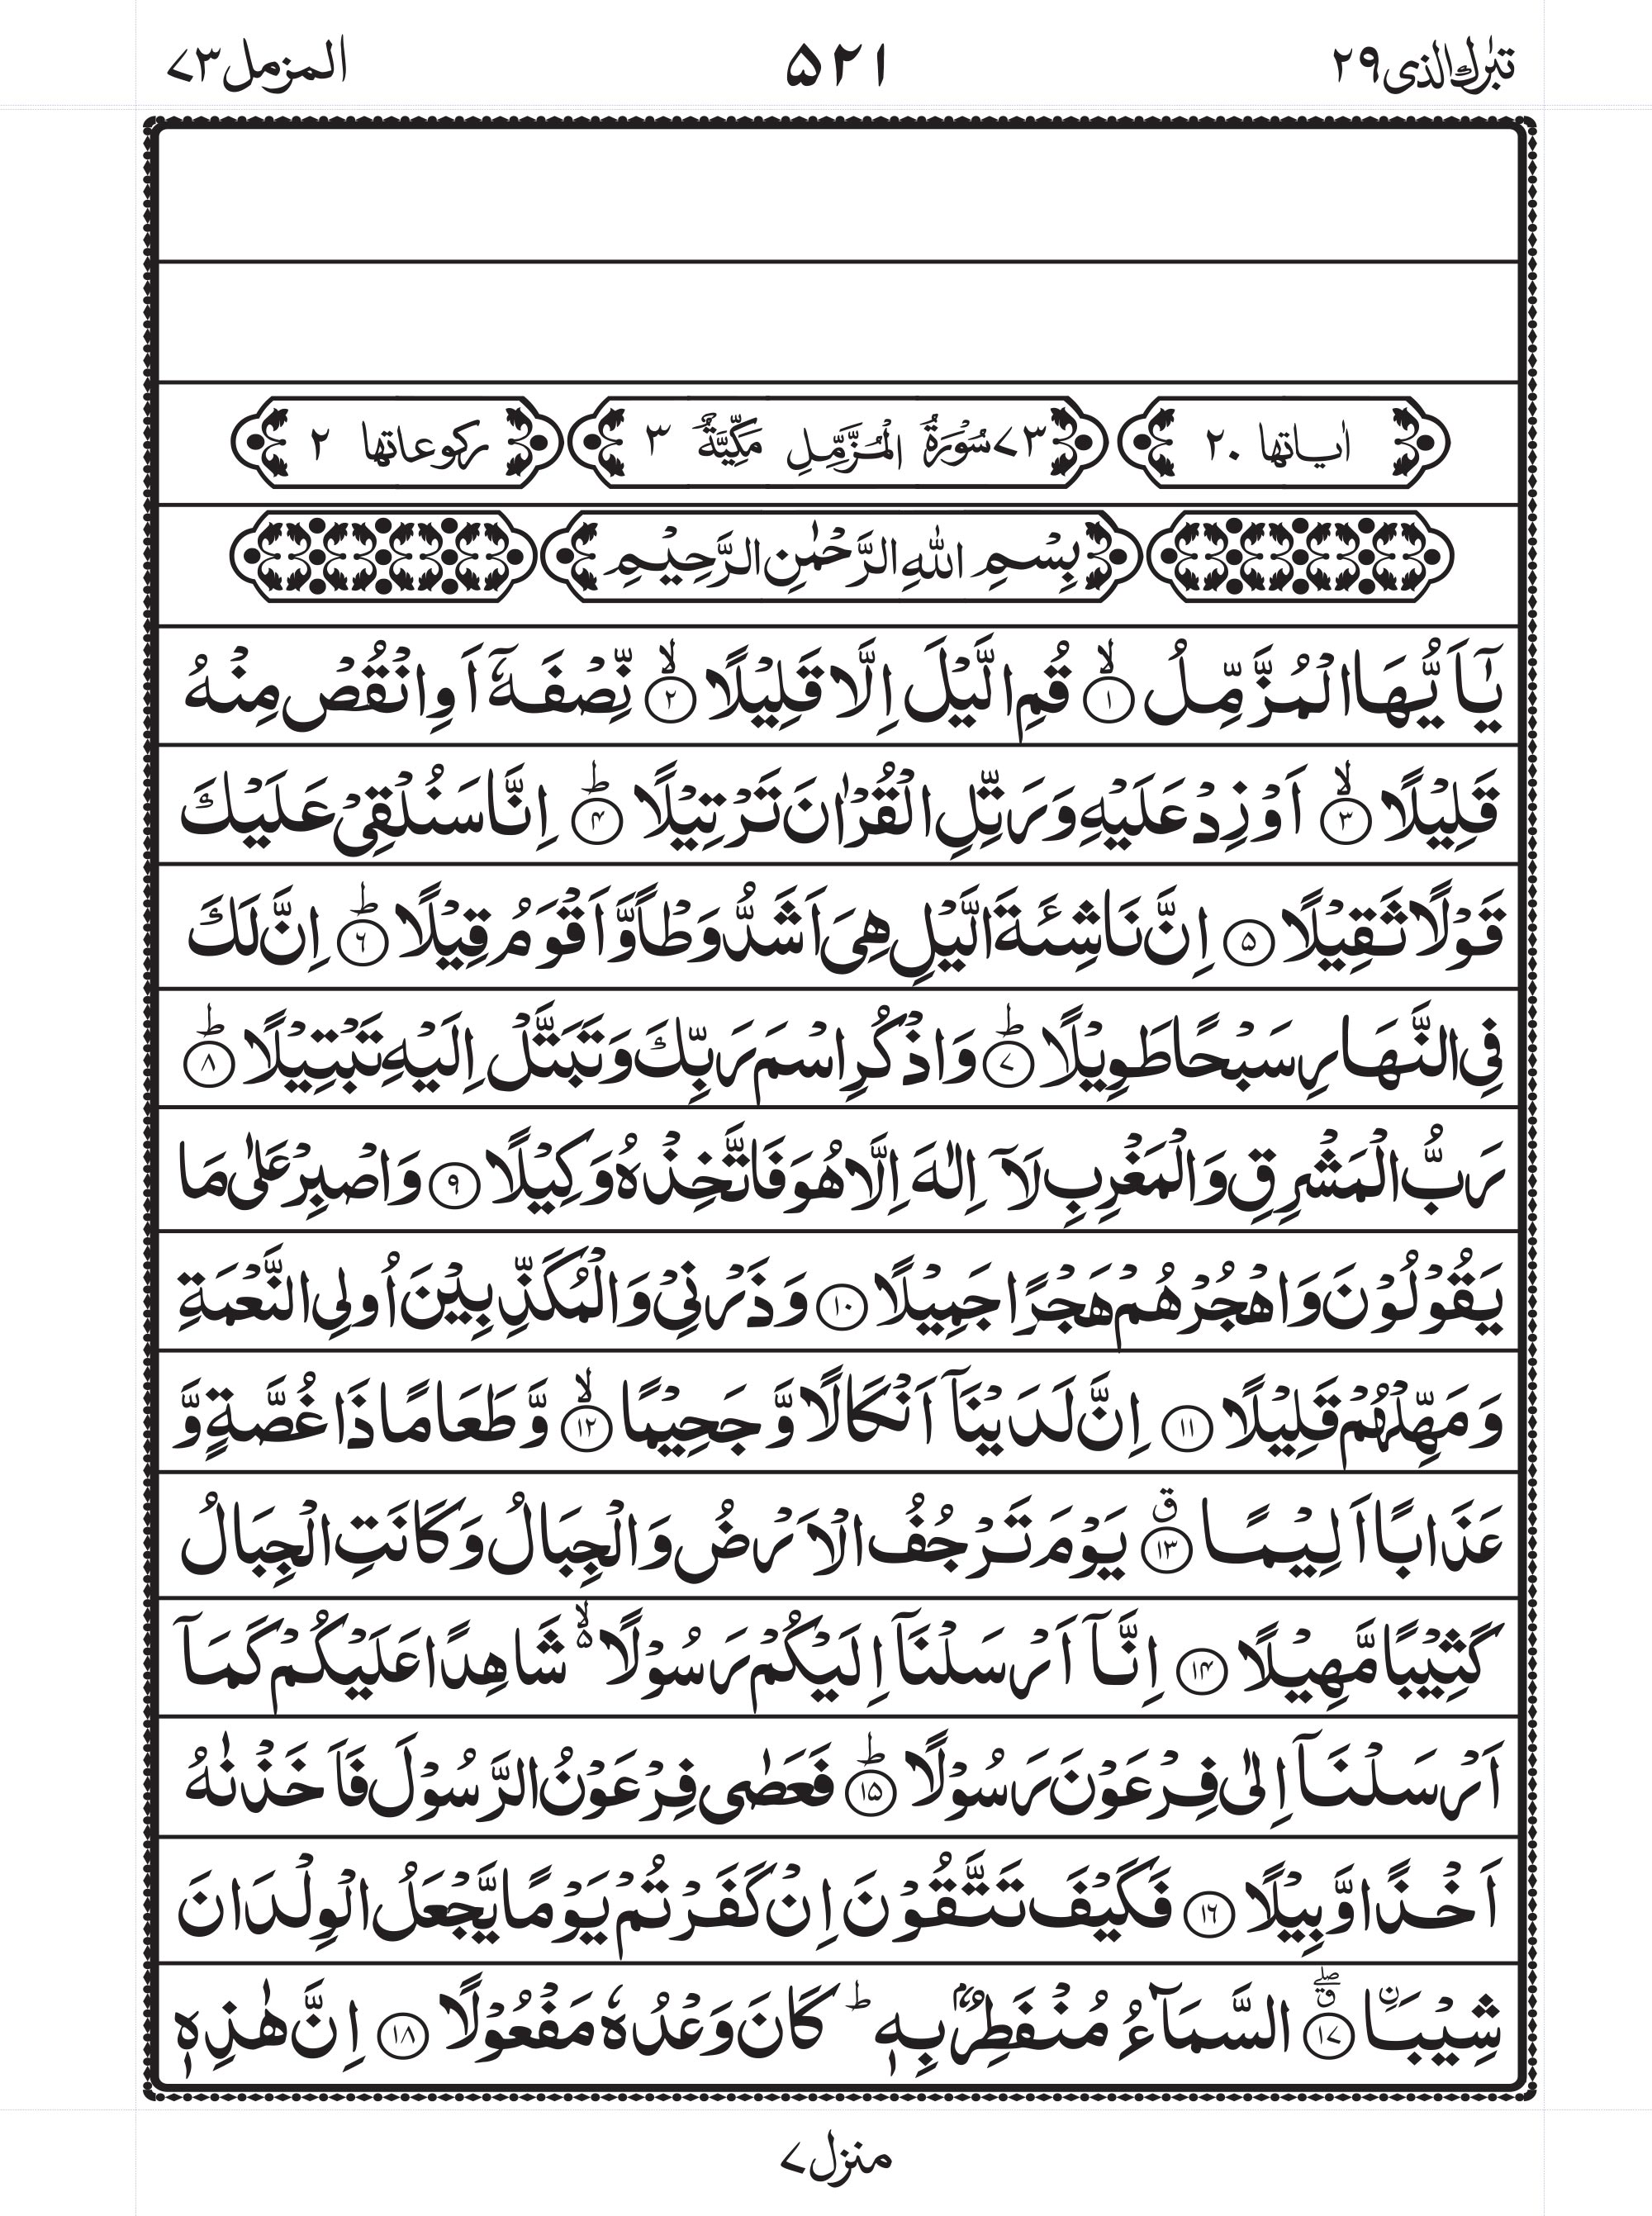 تبٰرك الذی ۲۹
۵۲۱
المزمل ۷۳
اٰیاتها ۲۰
۷۳ سُوْرَةُ الْمُزَّمِّلِ مَكِّيَّةٌ ۳
ركوعاتها ۲
بِسْمِ اللهِ الرَّحْمٰنِ الرَّحِيْمِ
يٰۤاَيُّهَا الْمُزَّمِّلُ ۙ﴿۱﴾ قُمِ الَّيْلَ اِلَّا قَلِيْلًا ۙ﴿۲﴾ نِّصْفَهٗۤ اَوِ انْقُصْ مِنْهُ
قَلِيْلًا ۙ﴿۳﴾ اَوْ زِدْ عَلَيْهِ وَرَتِّلِ الْقُرْاٰنَ تَرْتِيْلًا ؕ﴿۴﴾ اِنَّا سَنُلْقِيْ عَلَيْكَ
قَوْلًا ثَقِيْلًا ﴿۵﴾ اِنَّ نَاشِئَةَ الَّيْلِ هِيَ اَشَدُّ وَطْاً وَّاَقْوَمُ قِيْلًا ؕ﴿۶﴾ اِنَّ لَكَ
فِي النَّهَارِ سَبْحًا طَوِيْلًا ؕ﴿۷﴾ وَاذْكُرِ اسْمَ رَبِّكَ وَتَبَتَّلْ اِلَيْهِ تَبْتِيْلًا ؕ﴿۸﴾
رَبُّ الْمَشْرِقِ وَالْمَغْرِبِ لَاۤ اِلٰهَ اِلَّا هُوَ فَاتَّخِذْهُ وَكِيْلًا ﴿۹﴾ وَاصْبِرْ عَلٰى مَا
يَقُوْلُوْنَ وَاهْجُرْهُمْ هَجْرًا جَمِيْلًا ﴿۱۰﴾ وَذَرْنِيْ وَالْمُكَذِّبِيْنَ اُولِي النَّعْمَةِ
وَمَهِّلْهُمْ قَلِيْلًا ﴿۱۱﴾ اِنَّ لَدَيْنَاۤ اَنْكَالًا وَّجَحِيْمًا ۙ﴿۱۲﴾ وَّطَعَامًا ذَا غُصَّةٍ وَّ
عَذَابًا اَلِيْمًا ق﴿۱۳﴾ يَوْمَ تَرْجُفُ الْاَرْضُ وَالْجِبَالُ وَكَانَتِ الْجِبَالُ
كَثِيْبًا مَّهِيْلًا ﴿۱۴﴾ اِنَّاۤ اَرْسَلْنَاۤ اِلَيْكُمْ رَسُوْلًا ۬ۙ شَاهِدًا عَلَيْكُمْ كَمَاۤ
اَرْسَلْنَاۤ اِلٰى فِرْعَوْنَ رَسُوْلًا ؕ﴿۱۵﴾ فَعَصٰى فِرْعَوْنُ الرَّسُوْلَ فَاَخَذْنٰهُ
اَخْذًا وَّبِيْلًا ﴿۱۶﴾ فَكَيْفَ تَتَّقُوْنَ اِنْ كَفَرْتُمْ يَوْمًا يَّجْعَلُ الْوِلْدَانَ
شِيْبَا ۨ ۗۖ﴿۱۷﴾ السَّمَآءُ مُنْفَطِرٌۢ بِهٖ ؕ كَانَ وَعْدُهٗ مَفْعُوْلًا ﴿۱۸﴾ اِنَّ هٰذِهٖ
منزل ۷